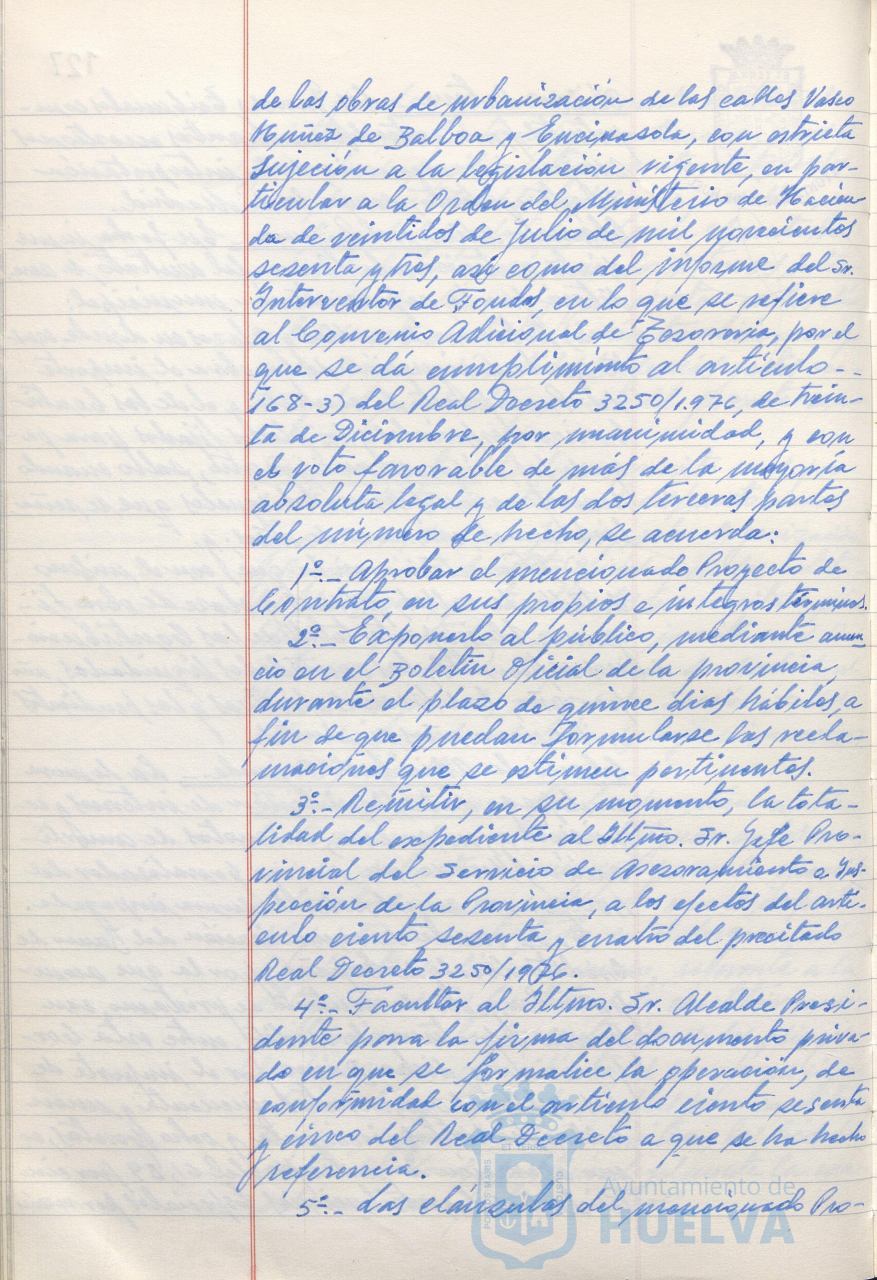 de las obras de urbanización de las calles Vasco
Núñez de Balboa y Encinasola, con estricta
sujeción a la legislación vigente, en par-
ticular a la Orden del Ministerio de Hacien-
da de veintidos de Julio de mil novecientos
sesenta y tres, así como del informe del Sr.
Interventor de Fondos, en lo que se refiere
al Convenio Adicional de Tesoreria, por el
que se dá cumplimiento al artículo--
168-3) del Real Decreto 3250/1.976, de trein-
ta de Diciembre, por unanimidad, y con
el voto favorable de más de la mayoría
absoluta legal y de las dos terceras partes
del número de hecho, se acuerda:
1º.- Aprobar el mencionado Proyecto de
Contrato, en sus propios e íntegros términos.
2º.- Exponerlo al público, mediante anun-
cio en el Boletín Oficial de la provincia,
durante el plazo de quince dias hábiles, a
fin de que puedan formularse las recla-
maciones que se estimen pertinentes.
3º.- Remitir, en su momento, la tota-
lidad del expediente al Iltmo. Sr. Jefe Pro-
vincial del Servicio de Asesoramiento e Ins-
pección de la Provincia, a los efectos del artí-
culo ciento sesenta y cuatro del precitado
Real Decreto 3250/1976.
4º.- Facultar al Iltmo. Sr. Alcalde Presi-
dente para la firma del documento priva-
do en que se formalice la operación, de
conformidad con el artículo ciento sesenta
y cinco del Real Decreto a que se ha hecho
referencia.
5º.- Las cláusulas del mencionado Pro-
Ayuntamiento de
HUELVA